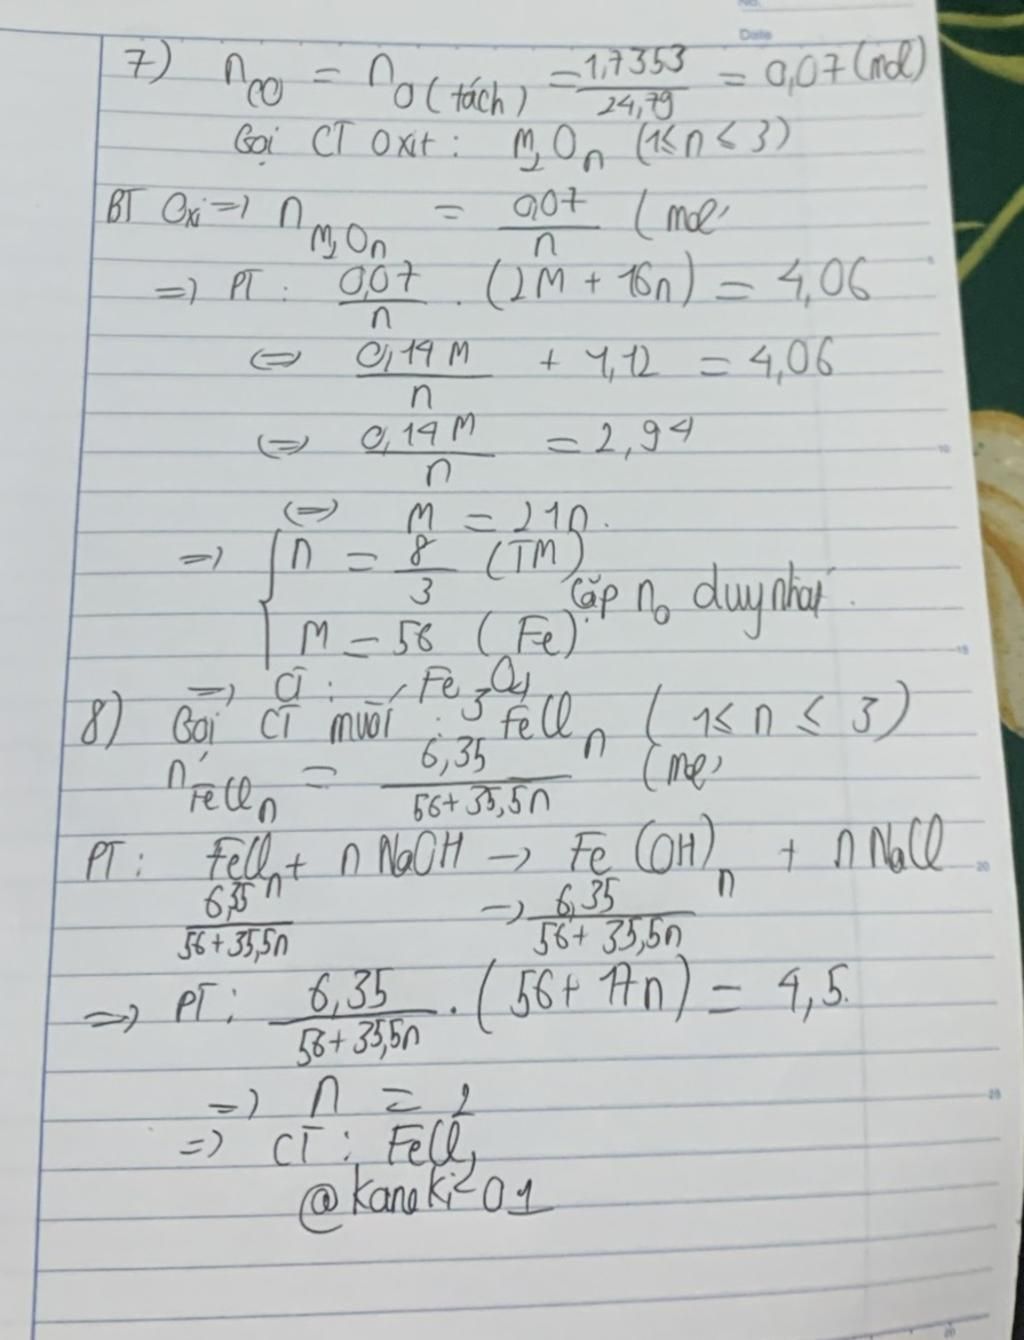 No.
Date
7) n_CO = n_O (tách) = 1,7353/24,79 = 0,07 (mol)
Gọi CT Oxit : M₂Oₙ (1 ≤ n ≤ 3)
BT Oxi => n_M₂Oₙ = 0,07/n (mol)
=> PT : 0,07/n . (2M + 16n) = 4,06
<=> 0,14M/n + 1,12 = 4,06
<=> 0,14M/n = 2,94
<=> M = 21n.
=> { n = 8/3 (TM)
Cặp n₀ duy nhất.
M = 56 (Fe)
=> CT : Fe₃O₄
8) Gọi CT muối : FeClₙ (1 ≤ n ≤ 3)
n_FeClₙ = 6,35/56+35,5n (mol)
PT : FeClₙ + n NaOH -> Fe(OH)ₙ + n NaCl
6,35/56+35,5n -> 6,35/56+35,5n
=> PT : 6,35/56+35,5n . (56+17n) = 4,5.
=> n = 2
=> CT : FeCl₂
@kaneki201